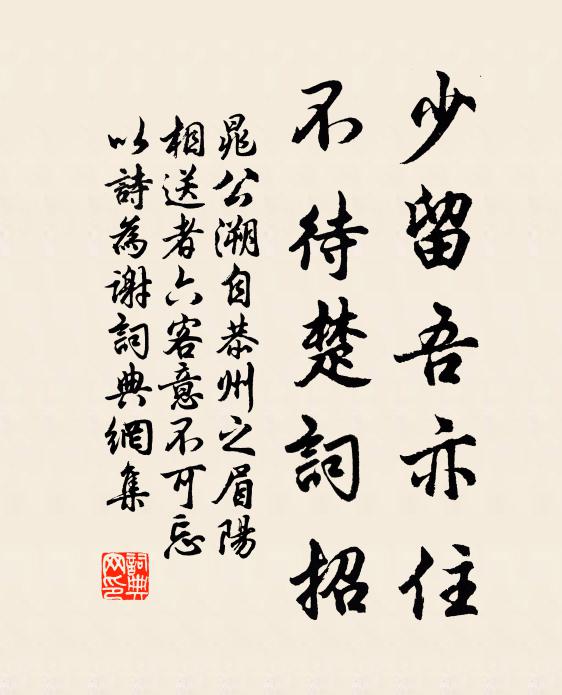 少留吾亦住
不待楚詞招
晁公溯自恭州之眉陽
相送者六客意不可忘
以詩為謝詞典網集
詞典
网印